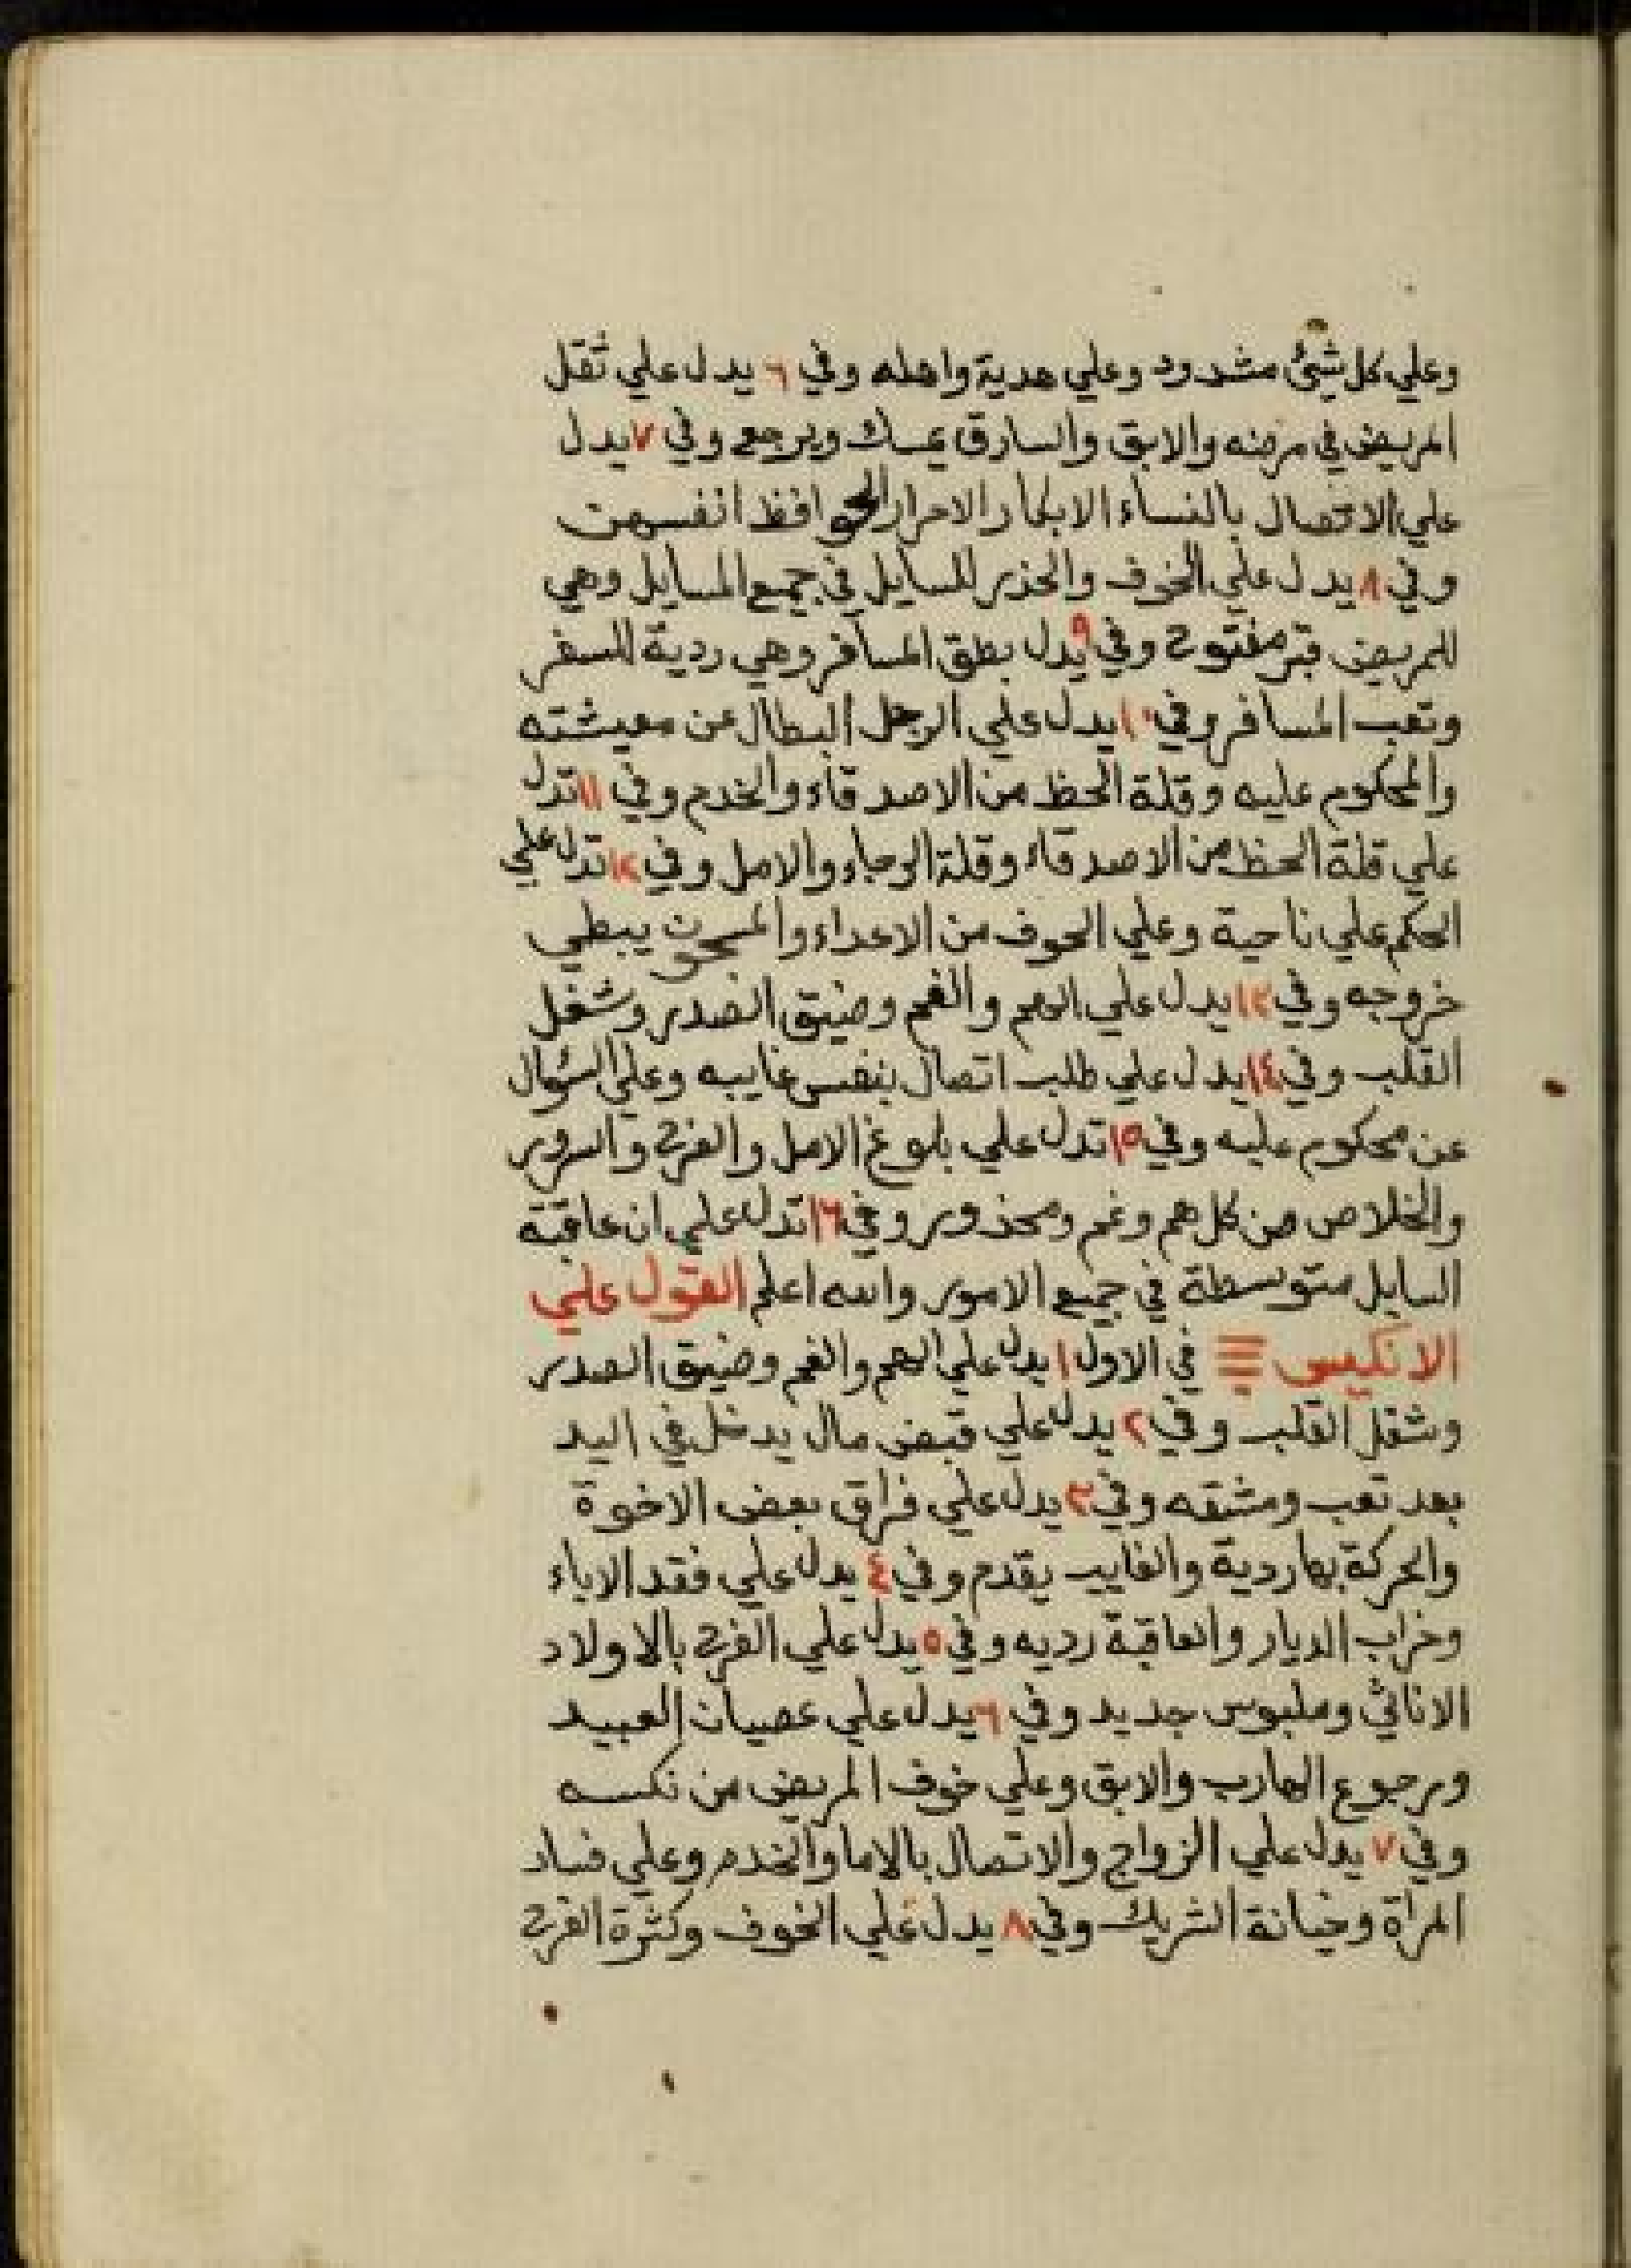 وعلي كل شيئ مشدود وعلي هدية واهله وفي ٦ يدل علي ثقل
المريض في مرضه والابق والسارق يمسك ويرجع وفي ٧ يدل
علي الاتصال بالنساء الابكار الاحرار الحوافظ انفسهن
وفي ٨ يدل علي الخوف والحذر للسايل في جميع المسايل وهي
للمريض قبر مفتوح وفي ٩ يدل بطق المسافر وهي ردية للسفر
وتعب المسافر وفي ١٠ يدل علي الرجل البطال عن معيشته
والمحكوم عليه وقلة الحظ من الاصدقاء والخدم وفي ١١ تدل
علي قلة الحظ من الاصدقاء وقلة الرجاء والامل وفي ١٢ تدل علي
الحكم علي ناحية وعلي الحوف من الاعداء والمسجون يبطي
خروجه وفي ١٣ يدل علي الهم والغم وضيق الصدر وشغل
القلب وفي ١٤ يدل علي طلب اتصال بنفس غايبه وعلي السؤال
عن محكوم عليه وفي ١٥ تدل علي بلوغ الامل والفرح والسرور
والخلاص من كل هم وغم ومحذور وفي ١٦ تدل علي ان عاقبة
السايل متوسطة في جميع الامور والله اعلم القول علي
الانكيس في الاول ١ يدل علي الهم والغم وضيق الصدر
وشغل القلب وفي ٢ يدل علي قبض مال يدخل في اليد
بعد تعب ومشقه وفي ٣ يدل علي فراق بعض الاخوة
والحركة بها ردية والغايب يقدم وفي ٤ يدل علي فقد الاباء
وخراب الديار والعاقبة رديه وفي ٥ يدل علي الفرح بالاولاد
الاناثي وملبوس جديد وفي ٦ يدل علي عصيان العبيد
ورجوع الهارب والابق وعلي خوف المريض من نكسه
وفي ٧ يدل علي الزواج والاتصال بالاما والخدم وعلي فساد
المراة وخيانة الشريك وفي ٨ يدل علي الخوف وكثرة الفرح